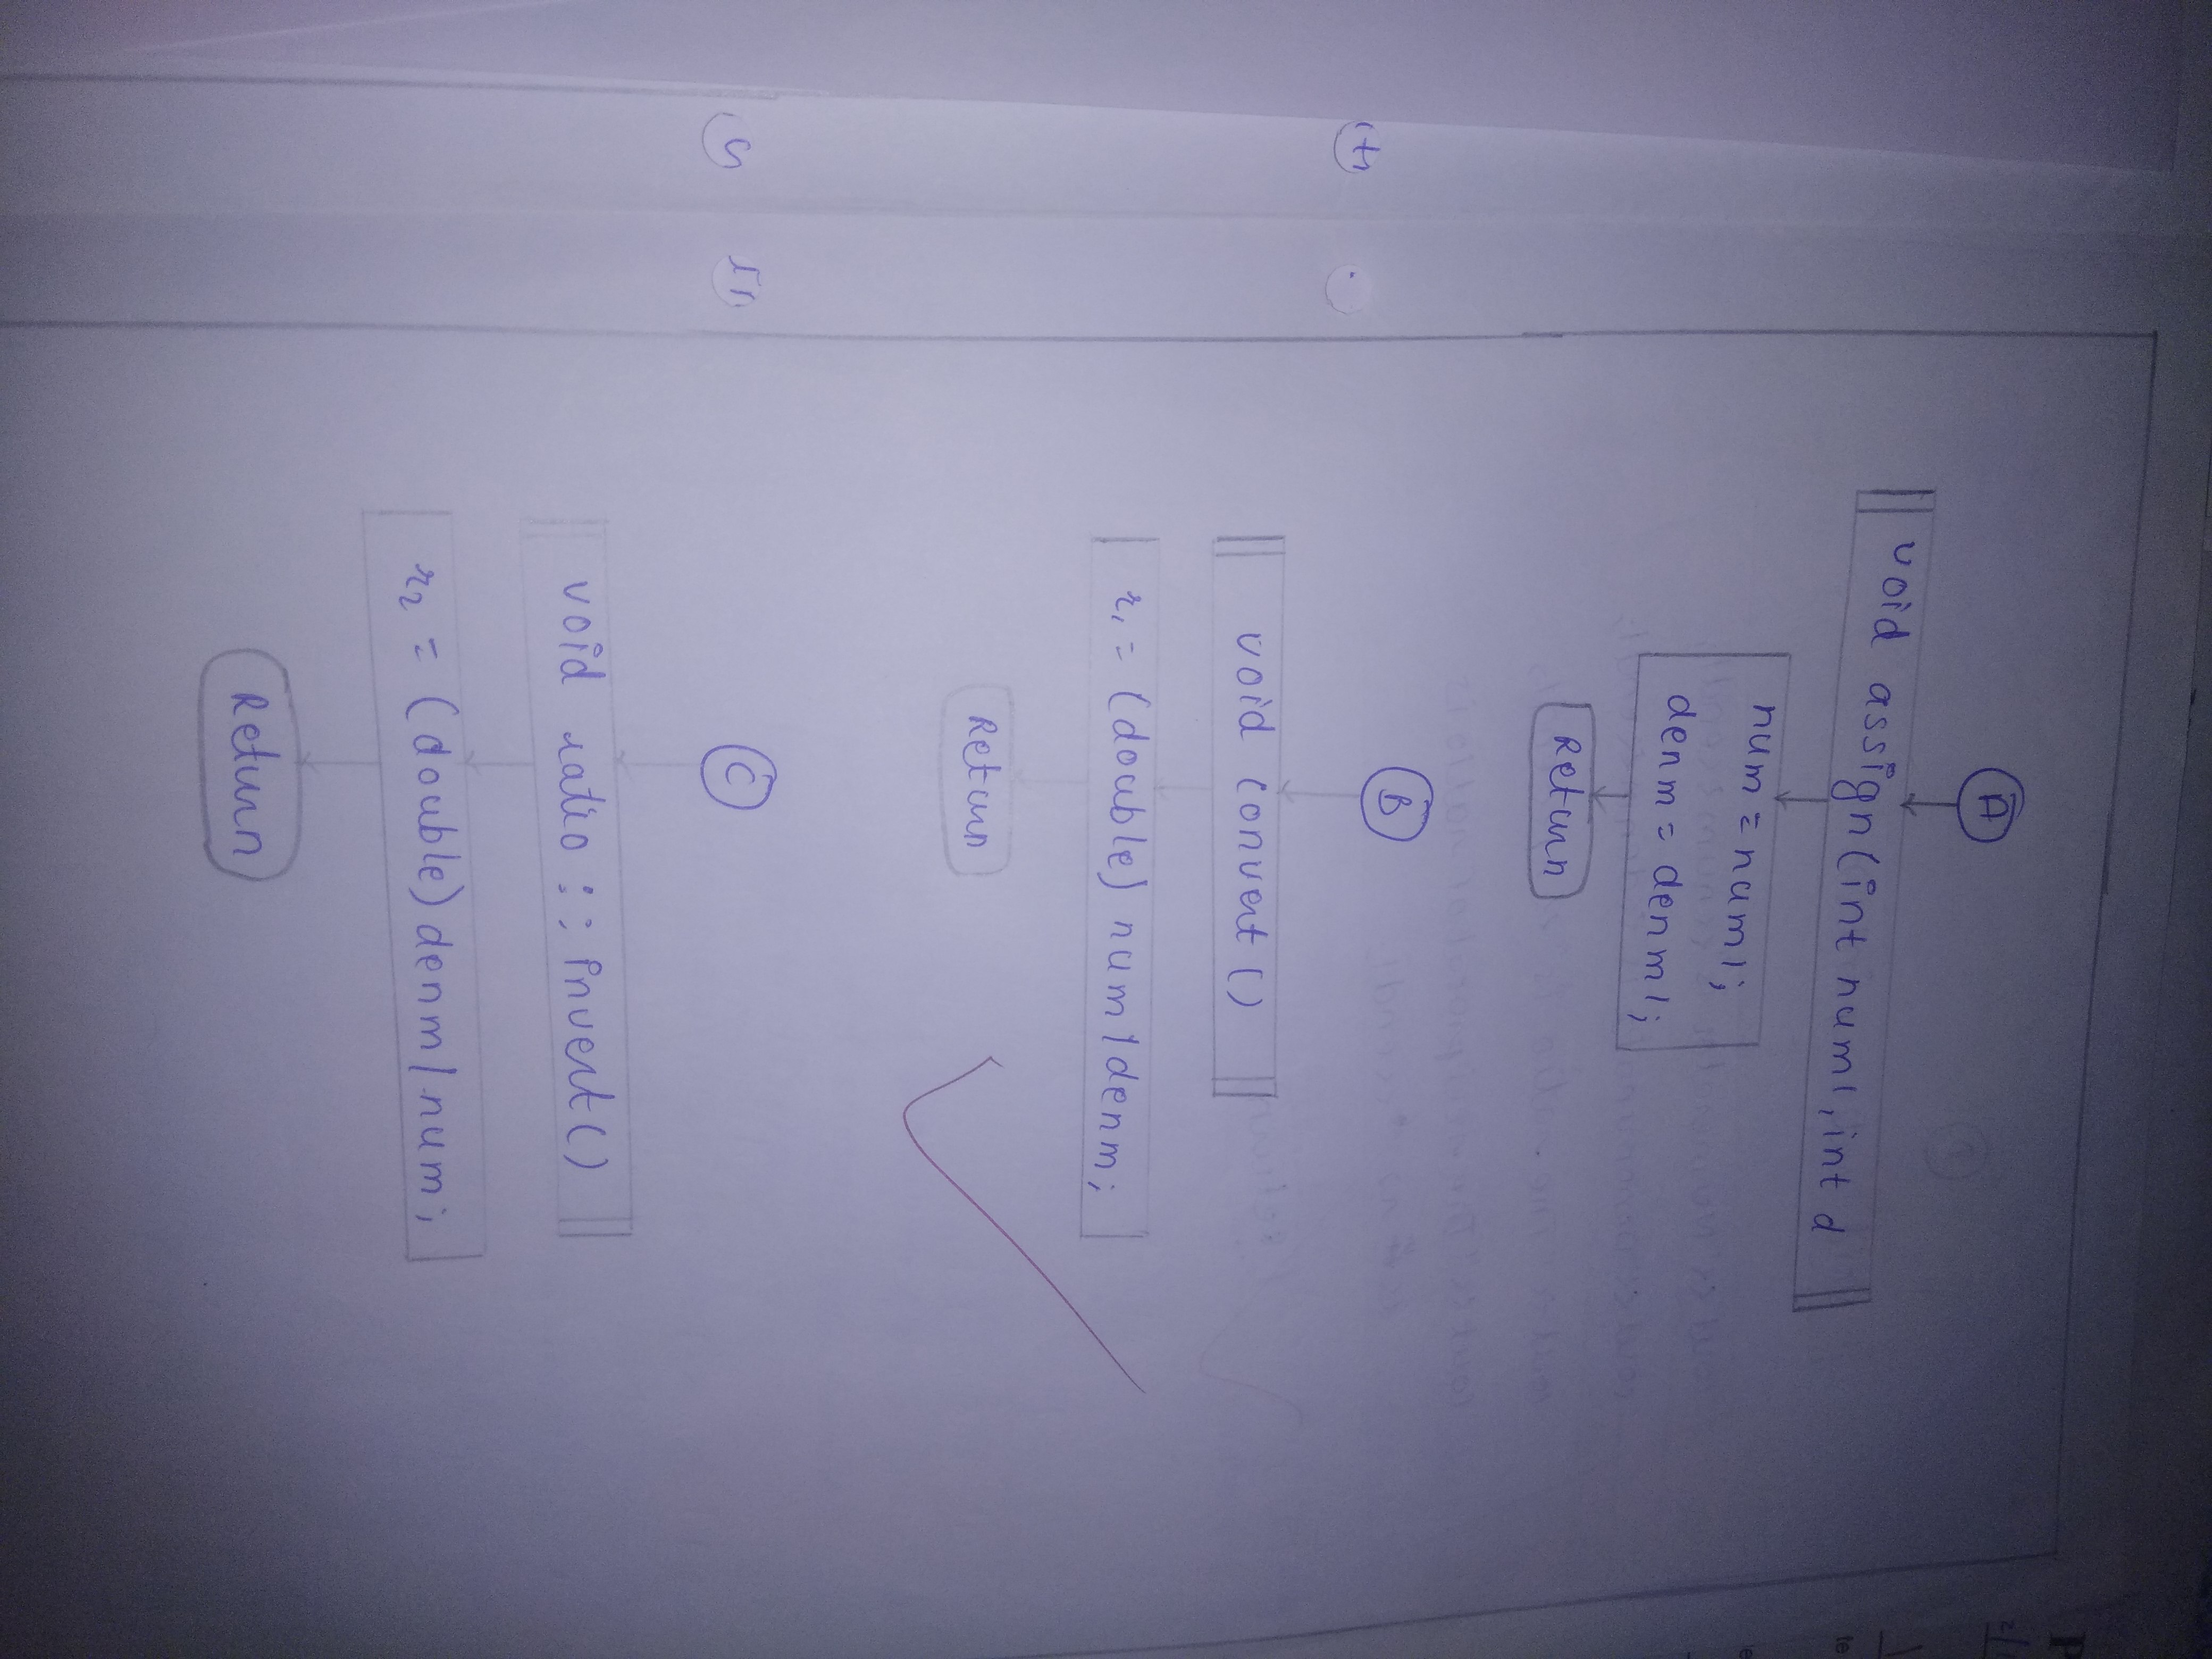 A
void assign(int num1, int d
num = num1;
denm = denm1;
Return
B
void convert()
r1 = (double) num/denm;
Return
C
void ratio :: invert()
r2 = (double) denm/num;
Return